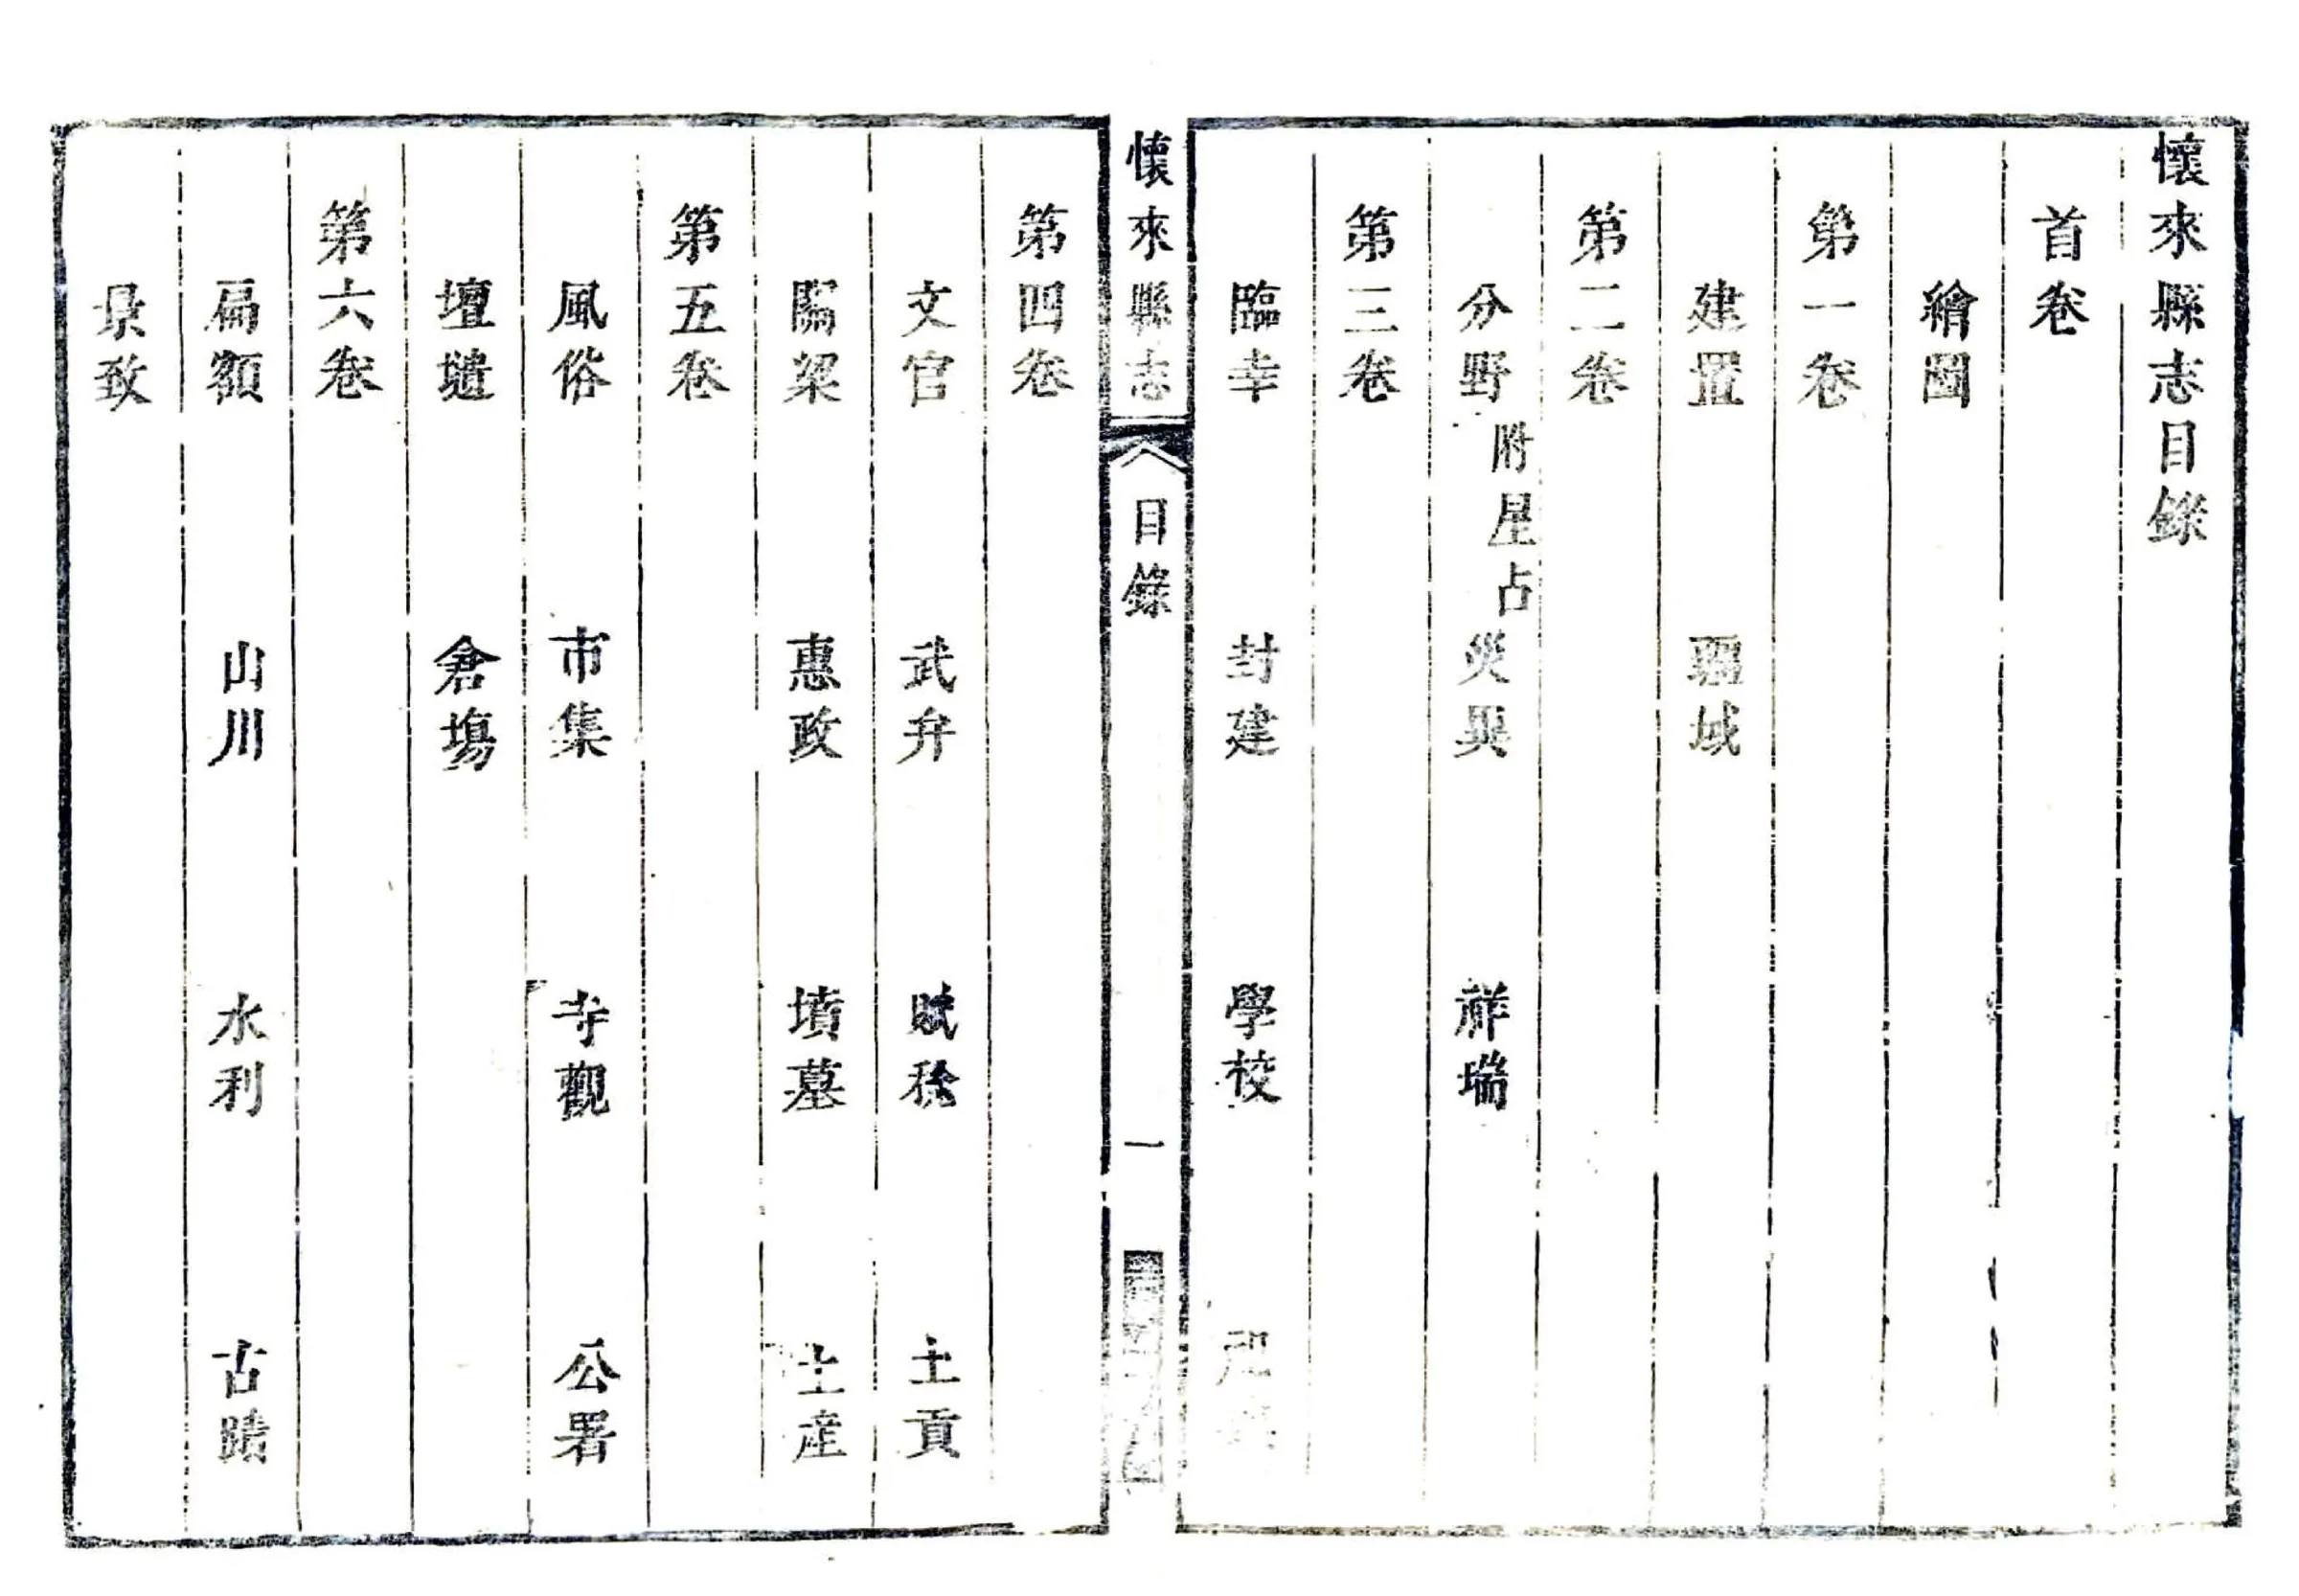 懷來縣志目錄
首卷
繪圖
第一卷
建置 疆域
第二卷
分野 附星占 災異 祥瑞
第三卷
臨幸 封建 學校
懷來縣志 目錄 一
第四卷
文官 武弁 賦稅 土貢
關梁 惠政 墳墓 土產
第五卷
風俗 市集 寺觀 公署
壇壝 倉場
第六卷
扁額 山川 水利 古蹟
景致